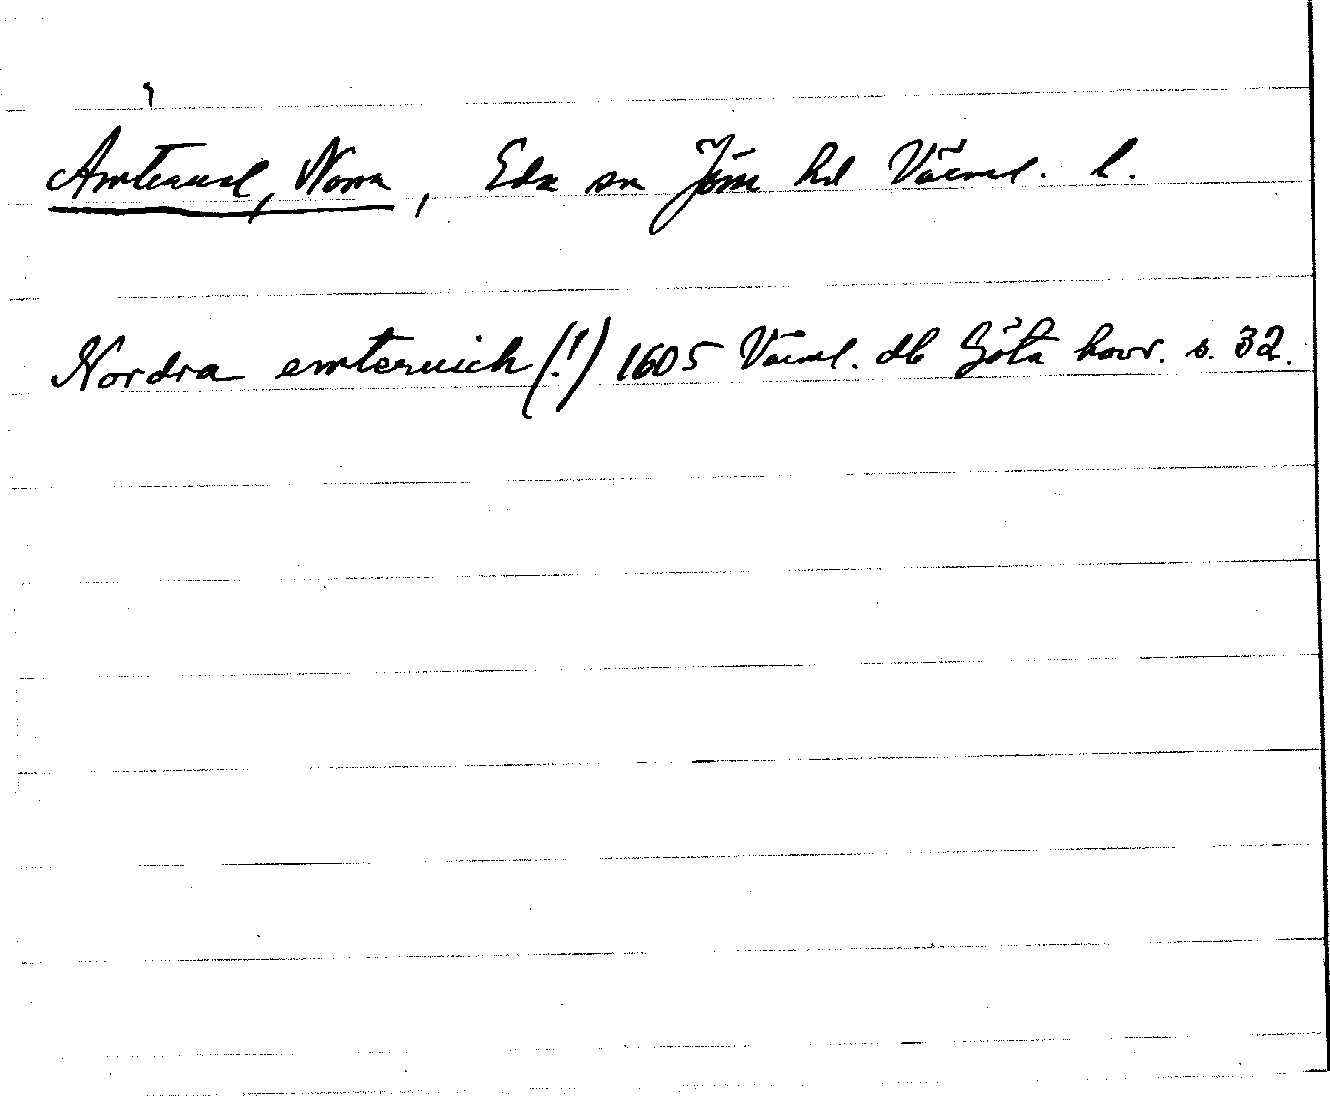 Amterud, Norra, Eda sn Jösse hd Värml. l.
Nordra emteruich (!) 1605 Värml. db Göta hovr. s. 32.